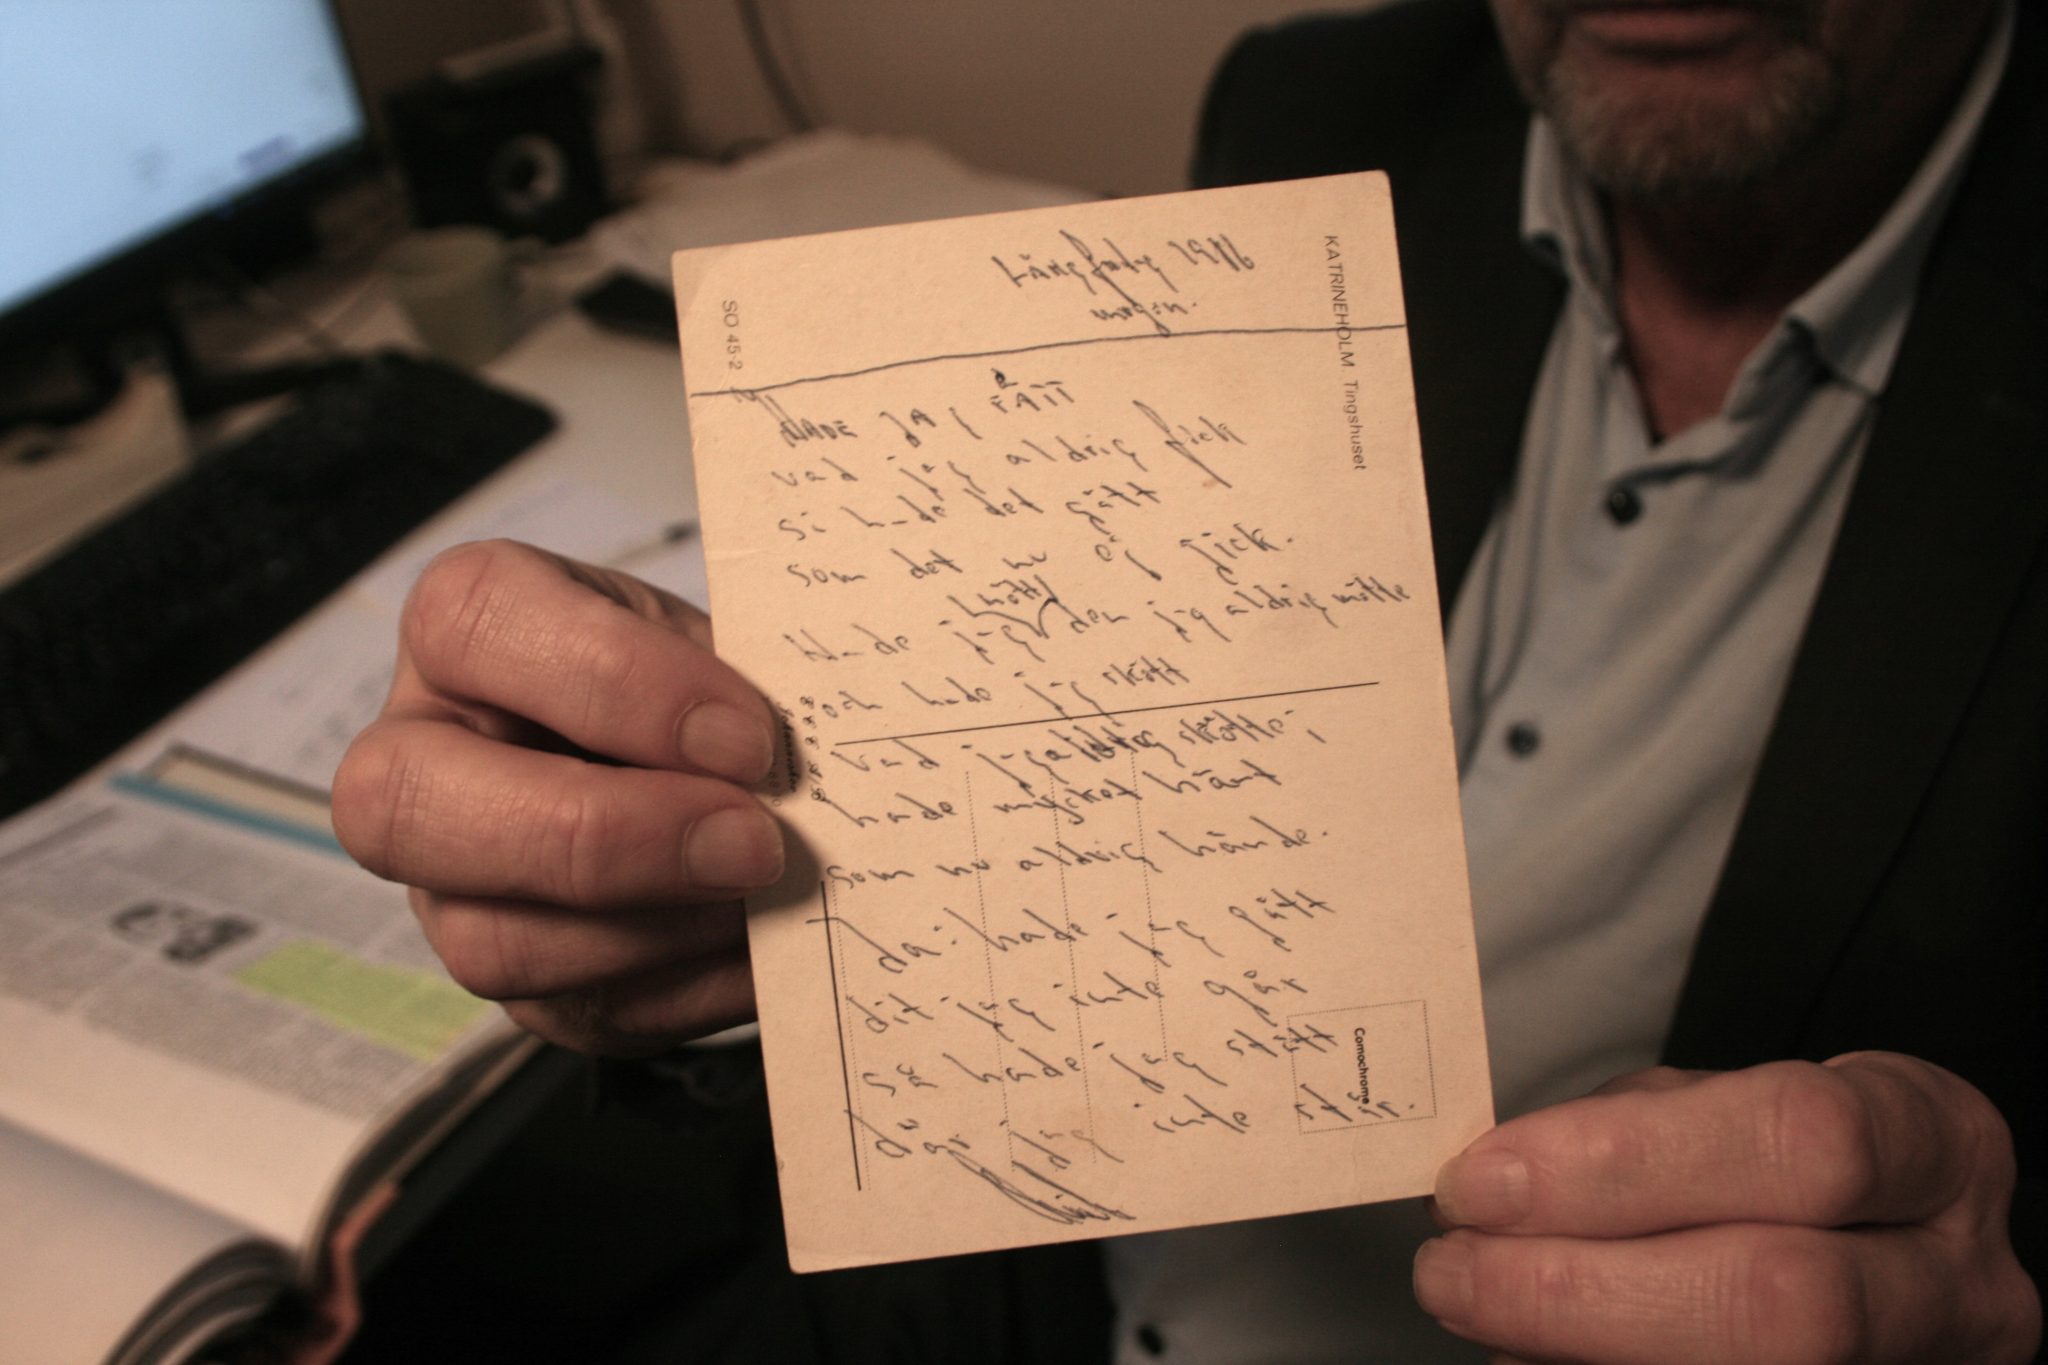 Långfredag 1976
morgon.
KATRINEHOLM Tingshuset
SO 45-2
HADE JAG FÅTT
vad jag aldrig fick
så hade det gått
som det nu ej gick.
Hade jag mött den jag aldrig mötte
och hade jag skött
vad jag aldrig skötte;
hade mycket hänt
som nu aldrig hände.
da: hade jag gått
dit jag inte går
så hade jag stått
där jag inte står.
Comochrome